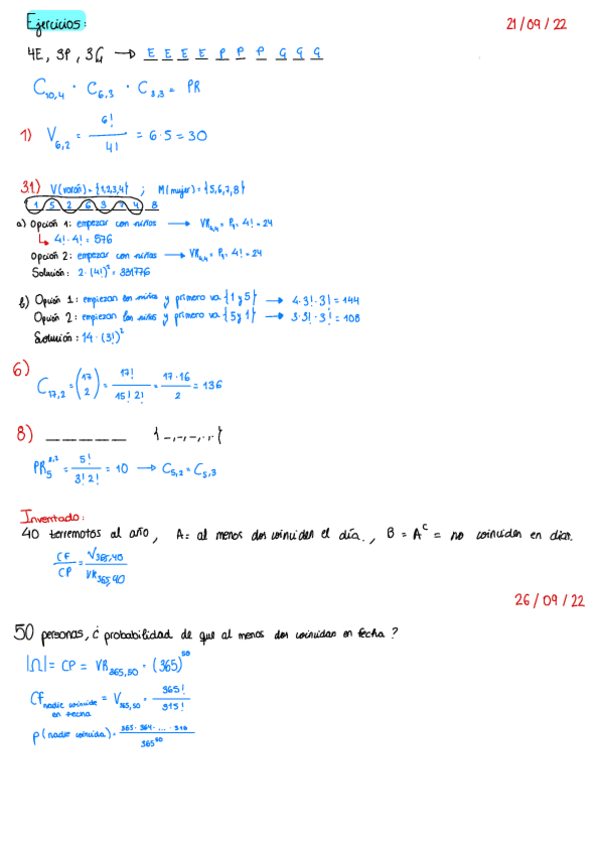 Ejercicios:
21/09/22
4E, 3P, 3G → E E E E P P P G G G
C10,4 · C6,3 · C3,3 = PR
1) V6,2 = 6!/4! = 6·5 = 30
31) V(varón) = {1,2,3,4} ; M(mujer) = {5,6,7,8}
1 5 2 6 3 7 4 8
a) Opción 1: empezar con niños → VR4,4 = P4 = 4! = 24
↳ 4!·4! = 576
Opción 2: empezar con niñas → VR4,4 = P4 = 4! = 24
Solución: 2·(4!)² = 331776
b) Opción 1: empiezan los niños y primero va {1 y 5} → 4·3!·3! = 144
Opción 2: empiezan las niñas y primero va {5 y 1} → 3·3!·3! = 108
Solución: 14·(3!)²
6)
C17,2 = (17 2) = 17!/15!2! = 17·16/2 = 136
8) _ _ _ _ _ _ {_,_,_,.,.}
PR5^3,2 = 5!/3!2! = 10 → C5,2 = C5,3
Inventado:
40 terremotos al año, A = al menos dos coinciden el día., B = A^C = no coinciden en días.
CF/CP = V365,40/VR365,40
26/09/22
50 personas, ¿probabilidad de que al menos dos coincidan en fecha?
|Ω| = CP = VR365,50 = (365)^50
CF nadie coincide en fecha = V365,50 = 365!/315!
p(nadie coincida) = 365·364·...·316/365^50